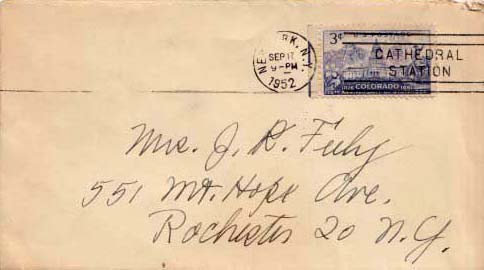 NEW YORK, N.Y.
SEP 11
9-PM
1952
U.S. POSTAGE
3¢
CATHEDRAL
STATION
COLORADO
Mrs. J. R. Feely
551 Mt. Hope Ave.
Rochester 20 N.Y.